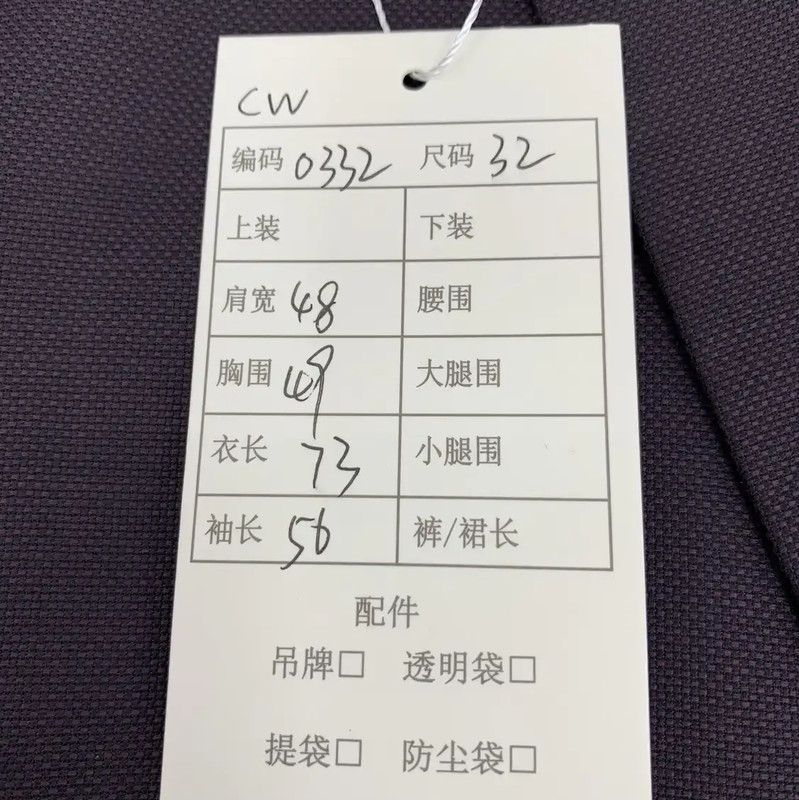 CW
编码 0332 尺码 32
上装 下装
肩宽 48 腰围
胸围 49 大腿围
衣长 73 小腿围
袖长 56 裤/裙长
配件
吊牌□ 透明袋□
提袋□ 防尘袋□